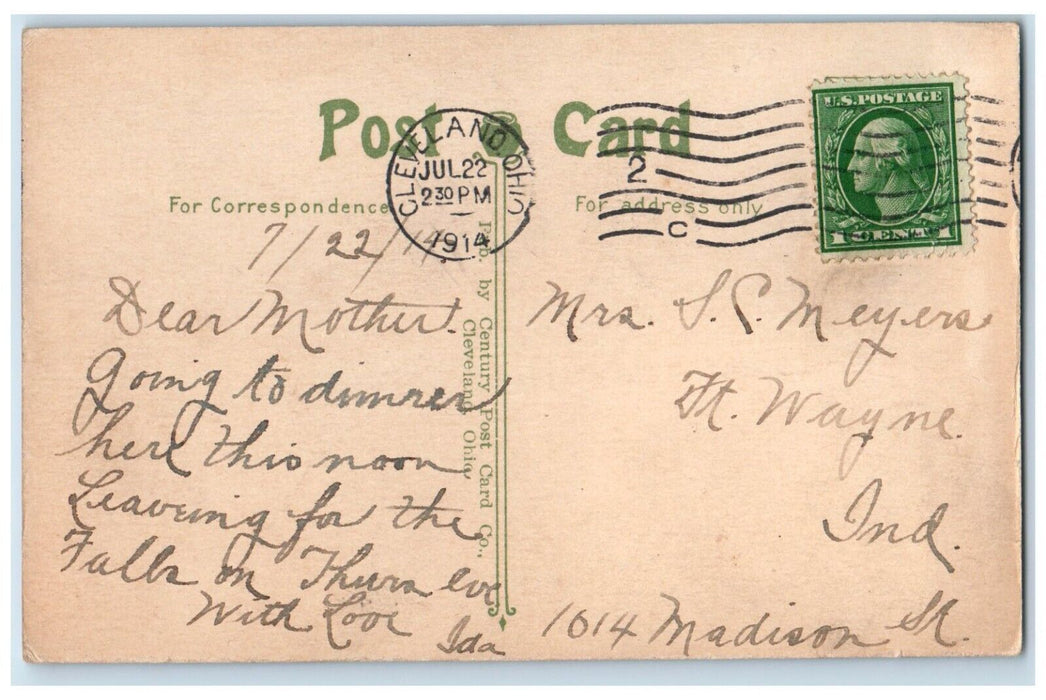 Post Card
CLEVELAND, OHIO
JUL 22
2 30 PM
1914
2
C
U.S. POSTAGE
1 CENT 1
For Correspondence
For address only
Pub. by Century Post Card Co.,
Cleveland, Ohio.
7/22/14
Dear Mother.
Going to dinner
here this noon
Leaveing for the
Falls on Thurs eve
With Love
Ida
Mrs. S. C. Meyers
Ft. Wayne.
Ind.
1614 Madison St.